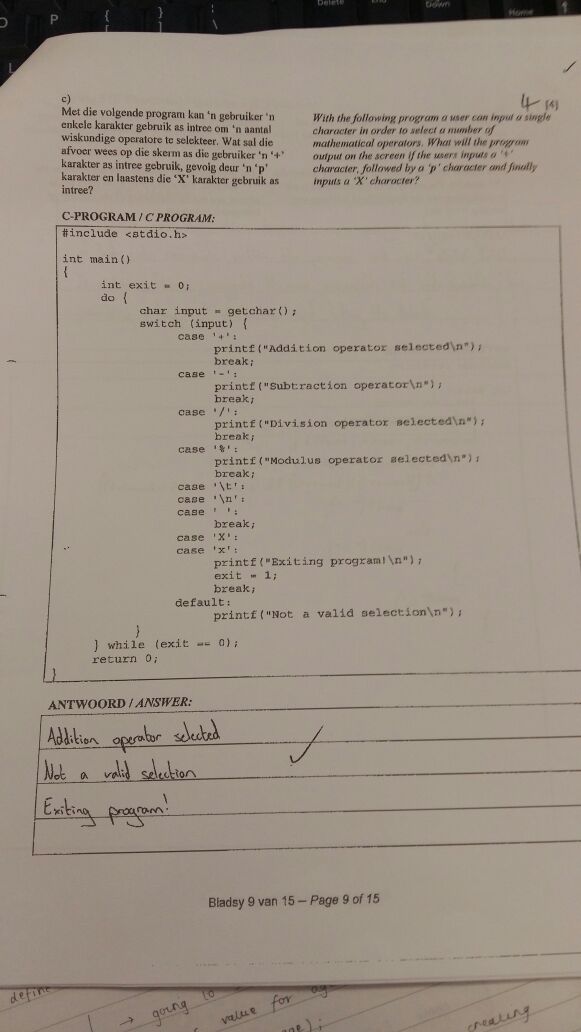 P
{
[
}
]
|
\
Delete
End
Down
Home
c)
4 [4]
Met die volgende program kan 'n gebruiker 'n
enkele karakter gebruik as intree om 'n aantal
wiskundige operatore te selekteer. Wat sal die
afvoer wees op die skerm as die gebruiker 'n '+'
karakter as intree gebruik, gevolg deur 'n 'p'
karakter en laastens die 'X' karakter gebruik as
intree?
With the following program a user can input a single
character in order to select a number of
mathematical operators. What will the program
output on the screen if the users inputs a '+'
character, followed by a 'p' character and finally
inputs a 'X' character?
C-PROGRAM / C PROGRAM:
#include <stdio.h>
int main()
{
int exit = 0;
do {
char input = getchar();
switch (input) {
case '+':
printf("Addition operator selected\n");
break;
case '-':
printf("Subtraction operator\n");
break;
case '/':
printf("Division operator selected\n");
break;
case '%':
printf("Modulus operator selected\n");
break;
case '\t':
case '\n':
case ' ':
break;
case 'X':
case 'x':
printf("Exiting program!\n");
exit = 1;
break;
default:
printf("Not a valid selection\n");
}
} while (exit == 0);
return 0;
}
ANTWOORD / ANSWER:
Addition operator selected
Not a valid selection
Exiting program!
Bladsy 9 van 15 – Page 9 of 15
define
→ going to
value for
creating